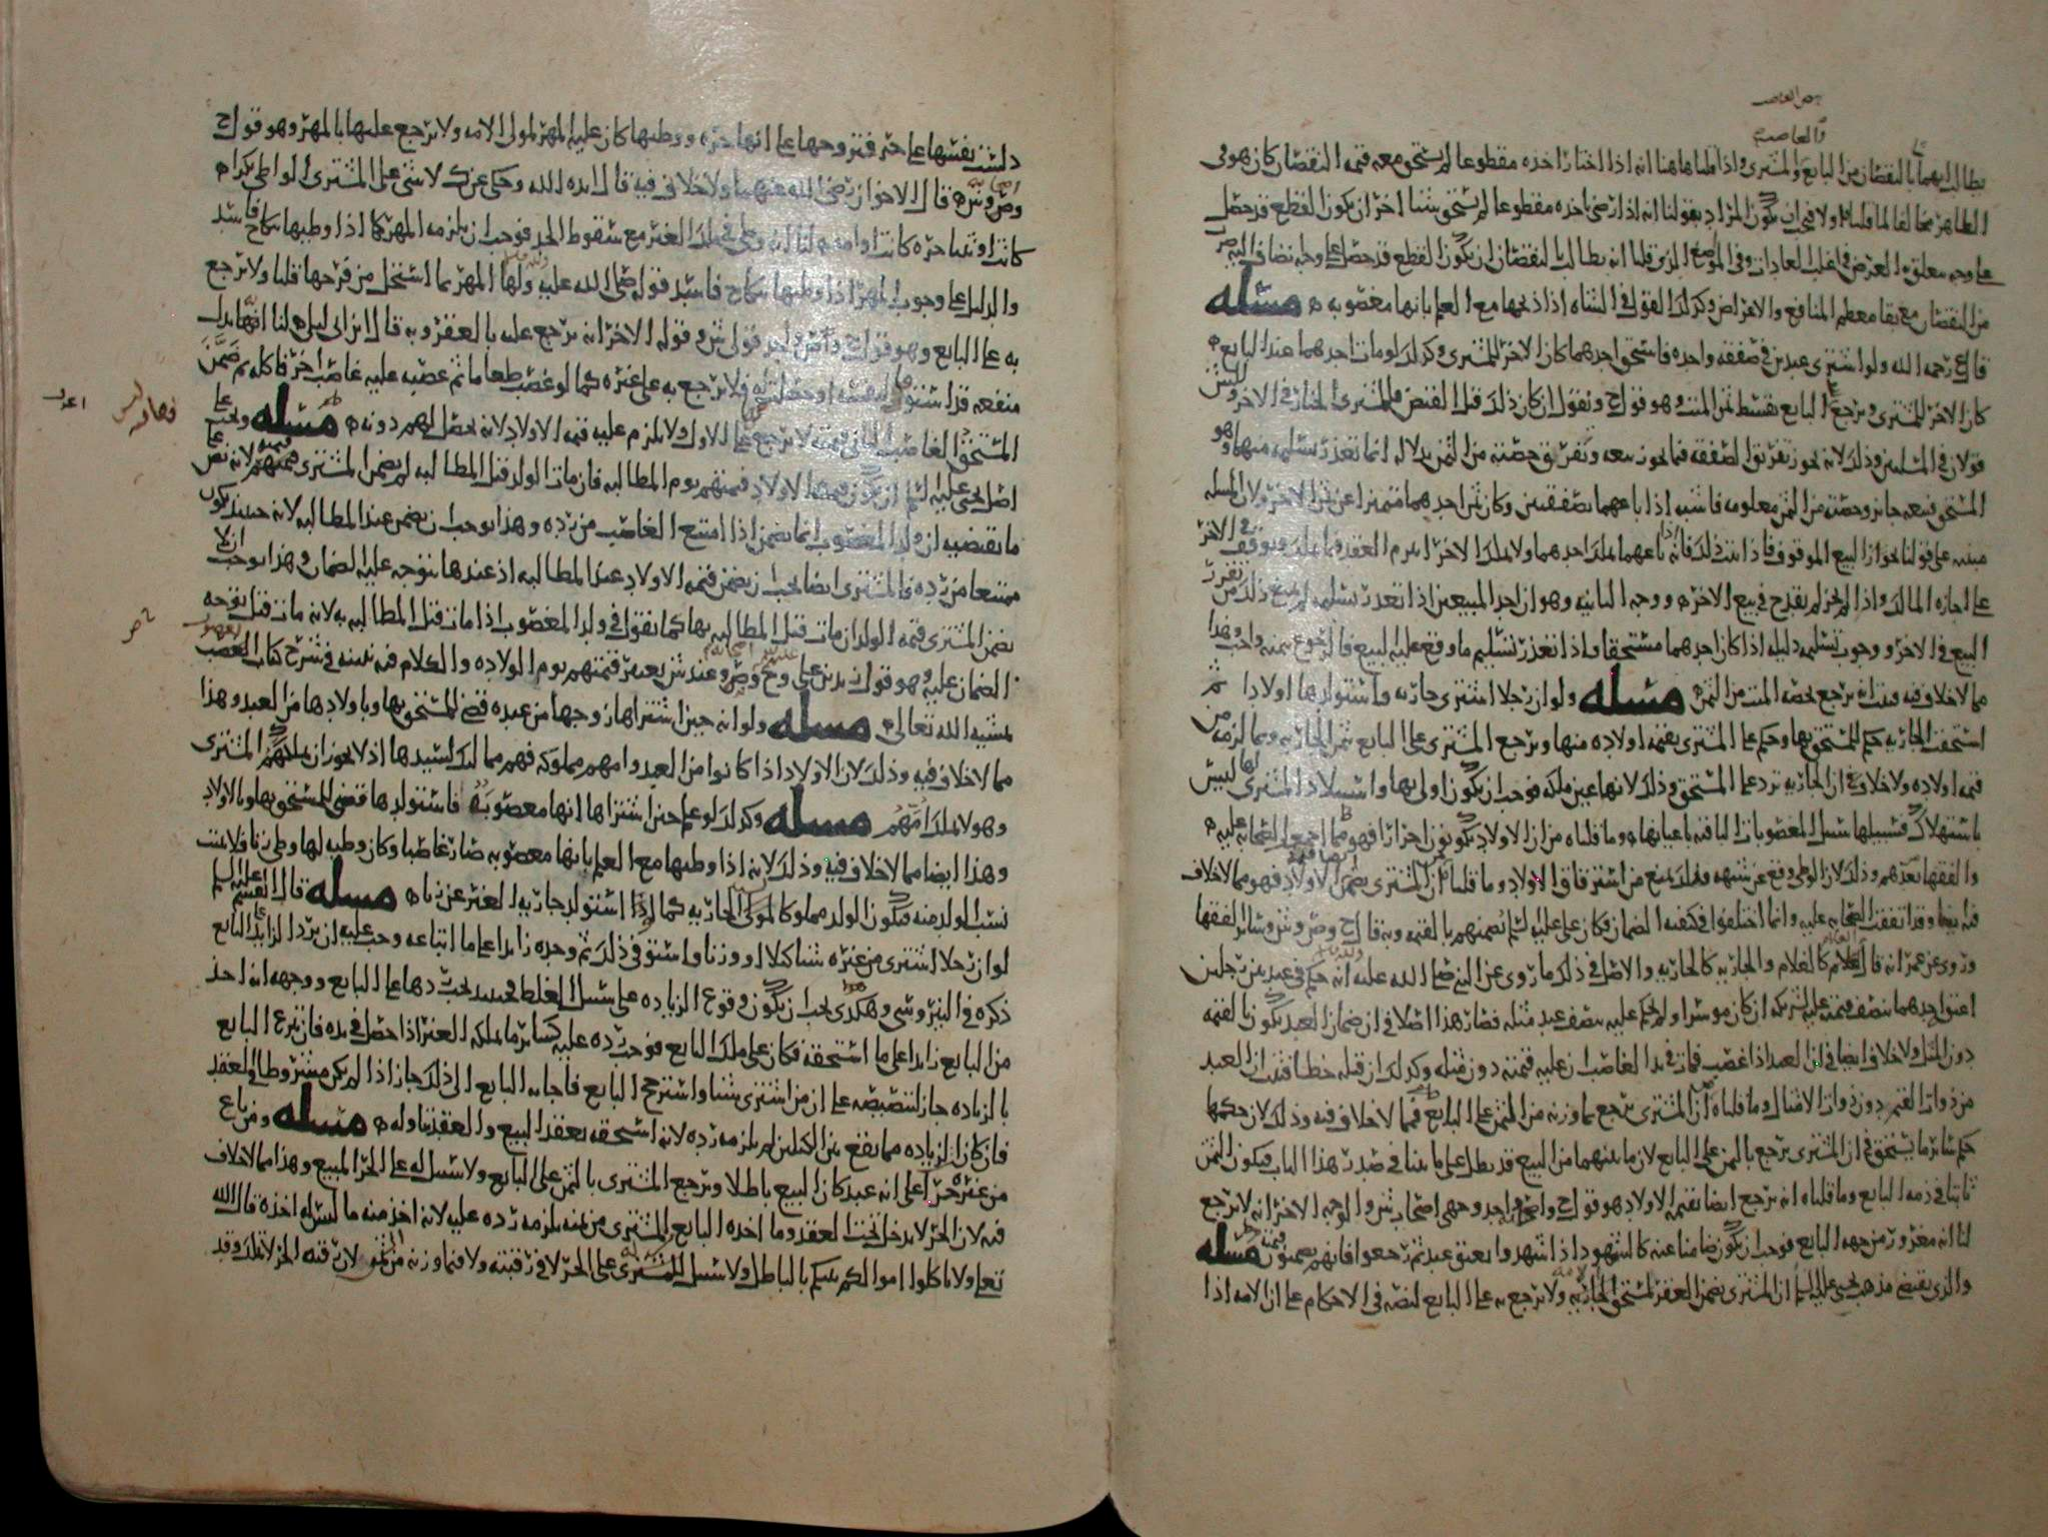 يطالب ايهما بالنقصان من البايع والمشتري واذا قلنا هاهنا انه اذا اختار اخذه مقطوعا لم يستحق معه قيمة النقصان كان هو في
الظاهر مخالفا لما قلناه اولا فيجب ان يكون المراد بقولنا انه اذا رضي باخذه مقطوعا لم يستحق شيئا اخر ان يكون القطع قد حصل
على وجه معلق به الغرض في اغلب العادات وفي الموضع الذي قلنا انه يطالب النقصان ان يكون القطع قد حصل على وجه
من النقصان مع بقا معظم المنافع والاغراض وكذلك القول في الشاه اذا ذبحها مع العلم بانها مغصوبه مسله
قال رحمه الله ولو اشترى عبدين في صفقه واحده فاستحق احدهما كان الاخر للمشتري وكذلك لو مات احدهما عند البايع
كان الاخر للمشتري ويرجع على البايع بقسط ثمن الميت وهو قول ح ونقول ان كان ذلك قبل القبض فللمشتري الخيار في الاخر
قولان في المسلتين وذلك لانه يجوز تفريق الصفقه فيما يجوز بيعه وتفريق حصته من الثمن بدلالة انما تعذر تسليمه منهما وهو
المستحق فبيعه جايز وحصته من الثمن معلومه فاشبه اذا باعهما بصفقتين وكان ثمن احدهما متميزا عن ثمن الاخر ولان المسله
مبنيه على قولنا بجواز البيع الموقوف فاذا ثبت ذلك فانه اذا باعهما يملك احدهما ولا يملك الاخر انبرم العقد فيما يملك ويوقف في الاخر
على اجازه المالك واذا لم يجز لم يقدح في بيع الاخر ووجه الثانيه وهو ان احد المبيعين اذا تعذر تسليمه لم يمنع ذلك من تفرد
البيع في الاخر ووجوب تسليمه دليله اذا كان احدهما مستحقا واذا تعذر تسليم ما وقع عليه البيع فالرجوع بثمنه واجب وهذا
مما لا خلاف فيه فثبت انه يرجع بحصه الميت من الثمن مسله ولو ان رجلا اشترى جاريه واستولدها اولادا ثم
استحقت الجاريه حكم للمستحق بها وحكم على المشتري بقيمه اولاده منها ويرجع المشتري على البايع بثمن الجاريه وبما لزمه من
قيمه اولاده ولا خلاف في ان الجاريه ترد على المستحق وذلك لانها عين ملكه فوجب ان يكون اولى بها واستيلاد المشتري لها ليس
باستهلاك فسبيلها سبيل المغصوبات الباقيه باعيانها وما قلناه من ان الاولاد يكونون احرارا فهو مما اجمع الصحابه عليه
والفقها بعدهم وذلك لان الوطي وقع عن شبهه فذلك يمنع من استرقاق الاولاد وما قلناه من ان المشتري يضمن الاولاد فهو مما لا خلاف
فيه ايضا وقد اتفقت الصحابه عليه وانما اختلفوا في كيفيه الضمان فكان علي عليه السلم يضمنهم بالقيمه وبه قال ح وص وش وساير الفقها
وروي عن عمر انه قال الغلام كالغلام والجاريه كالجاريه والاصل في ذلك ما روي عن النبي صلى الله عليه انه حكم في عبد بين رجلين
اعتق احدهما بنصف قيمته على شريكه ان كان موسرا ولم يحكم عليه بنصف عبد مثله فصار هذا اصلا في ان ضمان العبد يكون بالقيمه
دون المثل ولا خلاف ايضا في ان العبد اذا غصب فمات في يد الغاصب ان عليه قيمته دون مثله وكذلك ان قتله خطا فثبت ان العبد
من ذوات القيم دون ذوات الامثال وما قلناه من ان المشتري يرجع بما وزنه من الثمن على البايع فمما لا خلاف فيه وذلك لان حكمها
حكم ساير ما يستحق في ان المشتري يرجع بالثمن على البايع لان ما بينهما من البيع قد بطل على ما بينا في صدر هذا الباب فيكون الثمن
ثابتا في ذمه البايع وما قلناه انه يرجع ايضا بقيمه الاولاد هو قول ح واصحابه واحد وجهي اصحاب ش والوجه الاخر انه لا يرجع
لنا انه مغرور من جهه البايع فوجب ان يكون ضامنا عنه كالشهود اذا شهدوا بعتق عبد ثم رجعوا فانهم يضمنون قيمته مسله
والذي يقتضي مذهب يحيى عليه السلم ان المشتري يضمن العقر لمستحق الجاريه ولا يرجع به على البايع لنصه في الاحكام على ان الامه اذا
دلست نفسها على حر فتزوجها على انها حره ووطيها كان عليه المهر لمولى الامه ولا يرجع عليها بالمهر وهو قول ح
وص وش قال الاخوان رضي الله عنهما ولا خلاف فيه قال ايده الله وحكي عن ك لا شي على المشتري الواطي بكرا
كانت او ثيبا حره كانت او امه لنا انه وطي في ملك الغير مع سقوط الحد فوجب ان يلزمه المهر كما اذا وطيها بنكاح فاسد
والدليل على وجوب المهر اذا وطيها بنكاح فاسد قوله صلى الله عليه ولها المهر بما استحل من فرجها قلنا ولا يرجع
به على البايع وهو قول ح واحد قولي ش وقوله الاخر انه يرجع عليه بالعقر وبه قال ابن ابي ليلى لنا انها بدل
منفعه قد استوفاها لنفسه او حصلت له فلا يرجع به على غيره كما لو غصب طعاما ثم غصبه عليه غاصب اخر فاكله ثم ضمن
المستحق الغاصب الثاني قيمته لا يرجع على الاول ولا يلزم عليه قيمه الاولاد لانه يحصل لهم دونه مسله ويجي على
اصل يحيى عليه السلم ان يكون قيمه الاولاد قيمتهم يوم المطالبه فان مات الولد قبل المطالبه لم يضمن المشتري قيمتهم لانه نص على
ما يقتضيه ان ولد المغصوب انما يضمن اذا امتنع الغاصب من رده وهذا يوجب ان يضمن عند المطالبه لانه حينيذ يكون
ممتنعا من رده فالمشتري ايضا يجب ان يضمن قيمه الاولاد عند المطالبه اذ عندها يتوجه عليه الضمان وهذا يوجب ان لا
يضمن المشتري قيمه الولد ان مات قبل المطالبه بها كما نقول في ولد المغصوب اذا مات قبل المطالبه به لانه مات قبل توجه
الضمان عليه وهو قول زيد بن علي وح وص وعند ش يعتبر قيمتهم يوم الولاده والكلام فيه نبينه في شرح كتاب الغصب
بمشيه الله تعالى مسله ولو انه حين اشتراها زوجها من عبده قضي للمستحق بها وباولادها من العبد وهذا
مما لا خلاف فيه وذلك لان الاولاد اذا كانوا من العبد وامهم مملوكه فهم مماليك لسيدها اذ لا يجوز ان يملكهم المشتري
وهو لا يملك امهم مسله وكذلك لو علم حين اشتراها انها مغصوبه فاستولدها قضي للمستحق بها وبالاولاد
وهذا ايضا مما لا خلاف فيه وذلك لانه اذا وطيها مع العلم بانها مغصوبه صار غاصبا وكان وطيه لها وطي زنا فلا يثبت
نسب الولد منه فيكون الولد مملوكا لمولى الجاريه كما اذا استولد جاريه الغير عن زنا مسله قال القسم عليه السلم
لو ان رجلا اشترى من غيره شيا كيلا او وزنا واستوفى ذلك ثم وجده زايدا على ما ابتاعه وجب عليه ان يرد الزايد الى البايع
ذكره في النيروسي وهكذى يجب ان يكون وقوع الزياده على سبيل الغلط فحينيذ يجب ردها على البايع ووجهه انه اخذ
من البايع زايدا على ما استحقه فكان على ملك البايع فوجب رده عليه كساير ما يملكه الغير اذا حصل في يده فان تبرع البايع
بالزياده جاز لتنصيصه على ان من اشترى شيا واسترجح البايع فاجابه البايع الى ذلك جاز اذا لم يكن مشروطا في العقد
فان كان الزياده مما يقع بين الكيلين لم يلزمه رده لانه استحقه بعقد البيع والعقد تناوله مسله ومن باع
من غيره حرا على انه عبد كان البيع باطلا ويرجع المشتري بالثمن على البايع ولا سبيل له على الحر المبيع وهذا مما لا خلاف
فيه لان الحر لا يدخل تحت العقد وما اخذه البايع من المشتري من ثمنه يلزمه رده عليه لانه اخذ منه ما ليس له اخذه قال الله
تعلى ولا تاكلوا اموالكم بينكم بالباطل ولا سبيل للمشتري على الحر لا في رقبته ولا فيما وزنه من الثمن لان رقبه الحر لا تملك وقد